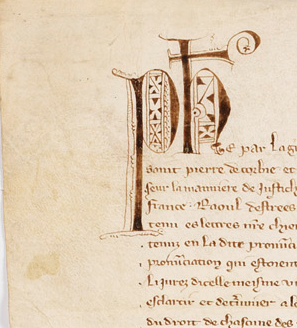 Ph
es par la g
saint pierre de corbie et
seur la maniere de justich
france Raoul desrees
tenu es lettres
tenus en La dite pronunc
pronunciation qui estoient
Lijurez dicelle meisme vi
esclarcir et determiner a l
du droit de chascune des